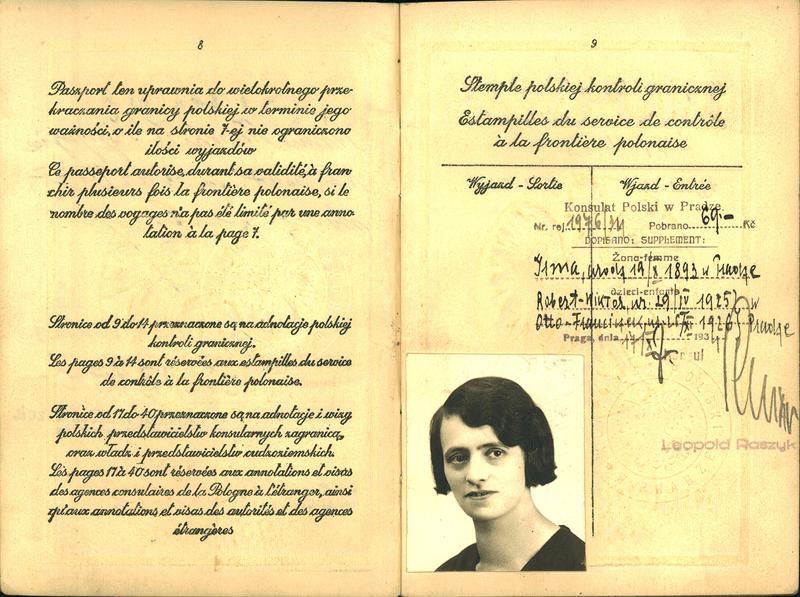 8
Paszport ten uprawnia do wielokrotnego prze-
kraczania granicy polskiej w terminie jego
ważności, o ile na stronie 7-ej nie ograniczono
ilości wyjazdów
Ce passeport autorise, durant sa validité, à fran-
chir plusieurs fois la frontière polonaise, si le
nombre des voyages n'a pas été limité par une anno-
tation à la page 7.
Stronice od 9 do 14 przeznaczone są na adnotacje polskiej
kontroli granicznej.
Les pages 9 à 14 sont réservées aux estampilles du service
de contrôle à la frontière polonaise.
Stronice od 17 do 40 przeznaczone są na adnotacje i wizy
polskich przedstawicielstw konsularnych zagranicą,
oraz władz i przedstawicielstw cudzoziemskich.
Les pages 17 à 40 sont réservées aux annotations et visas
des agences consulaires de la Pologne à l'étranger, ainsi
qu'aux annotations et visas des autorités et des agences
étrangères
9
Stemple polskiej kontroli granicznej
Estampilles du service de contrôle
à la frontière polonaise
Wyjazd - Sortie Wjazd - Entrée
Konsulat Polski w Pradze.
Nr. rej. Pobrano 69.- Kč
DOPISANO: SUPPLEMENT:
Żona-femme
Irma, urodz 19/X 1893 w Pradze
dzieci-enfants
Robert-Wiktor, ur. 29/IV 1925 w
Otto-Franciszek, 1926 Pradze
Praga, dnia 193
Konsul
Leopold Raszyk